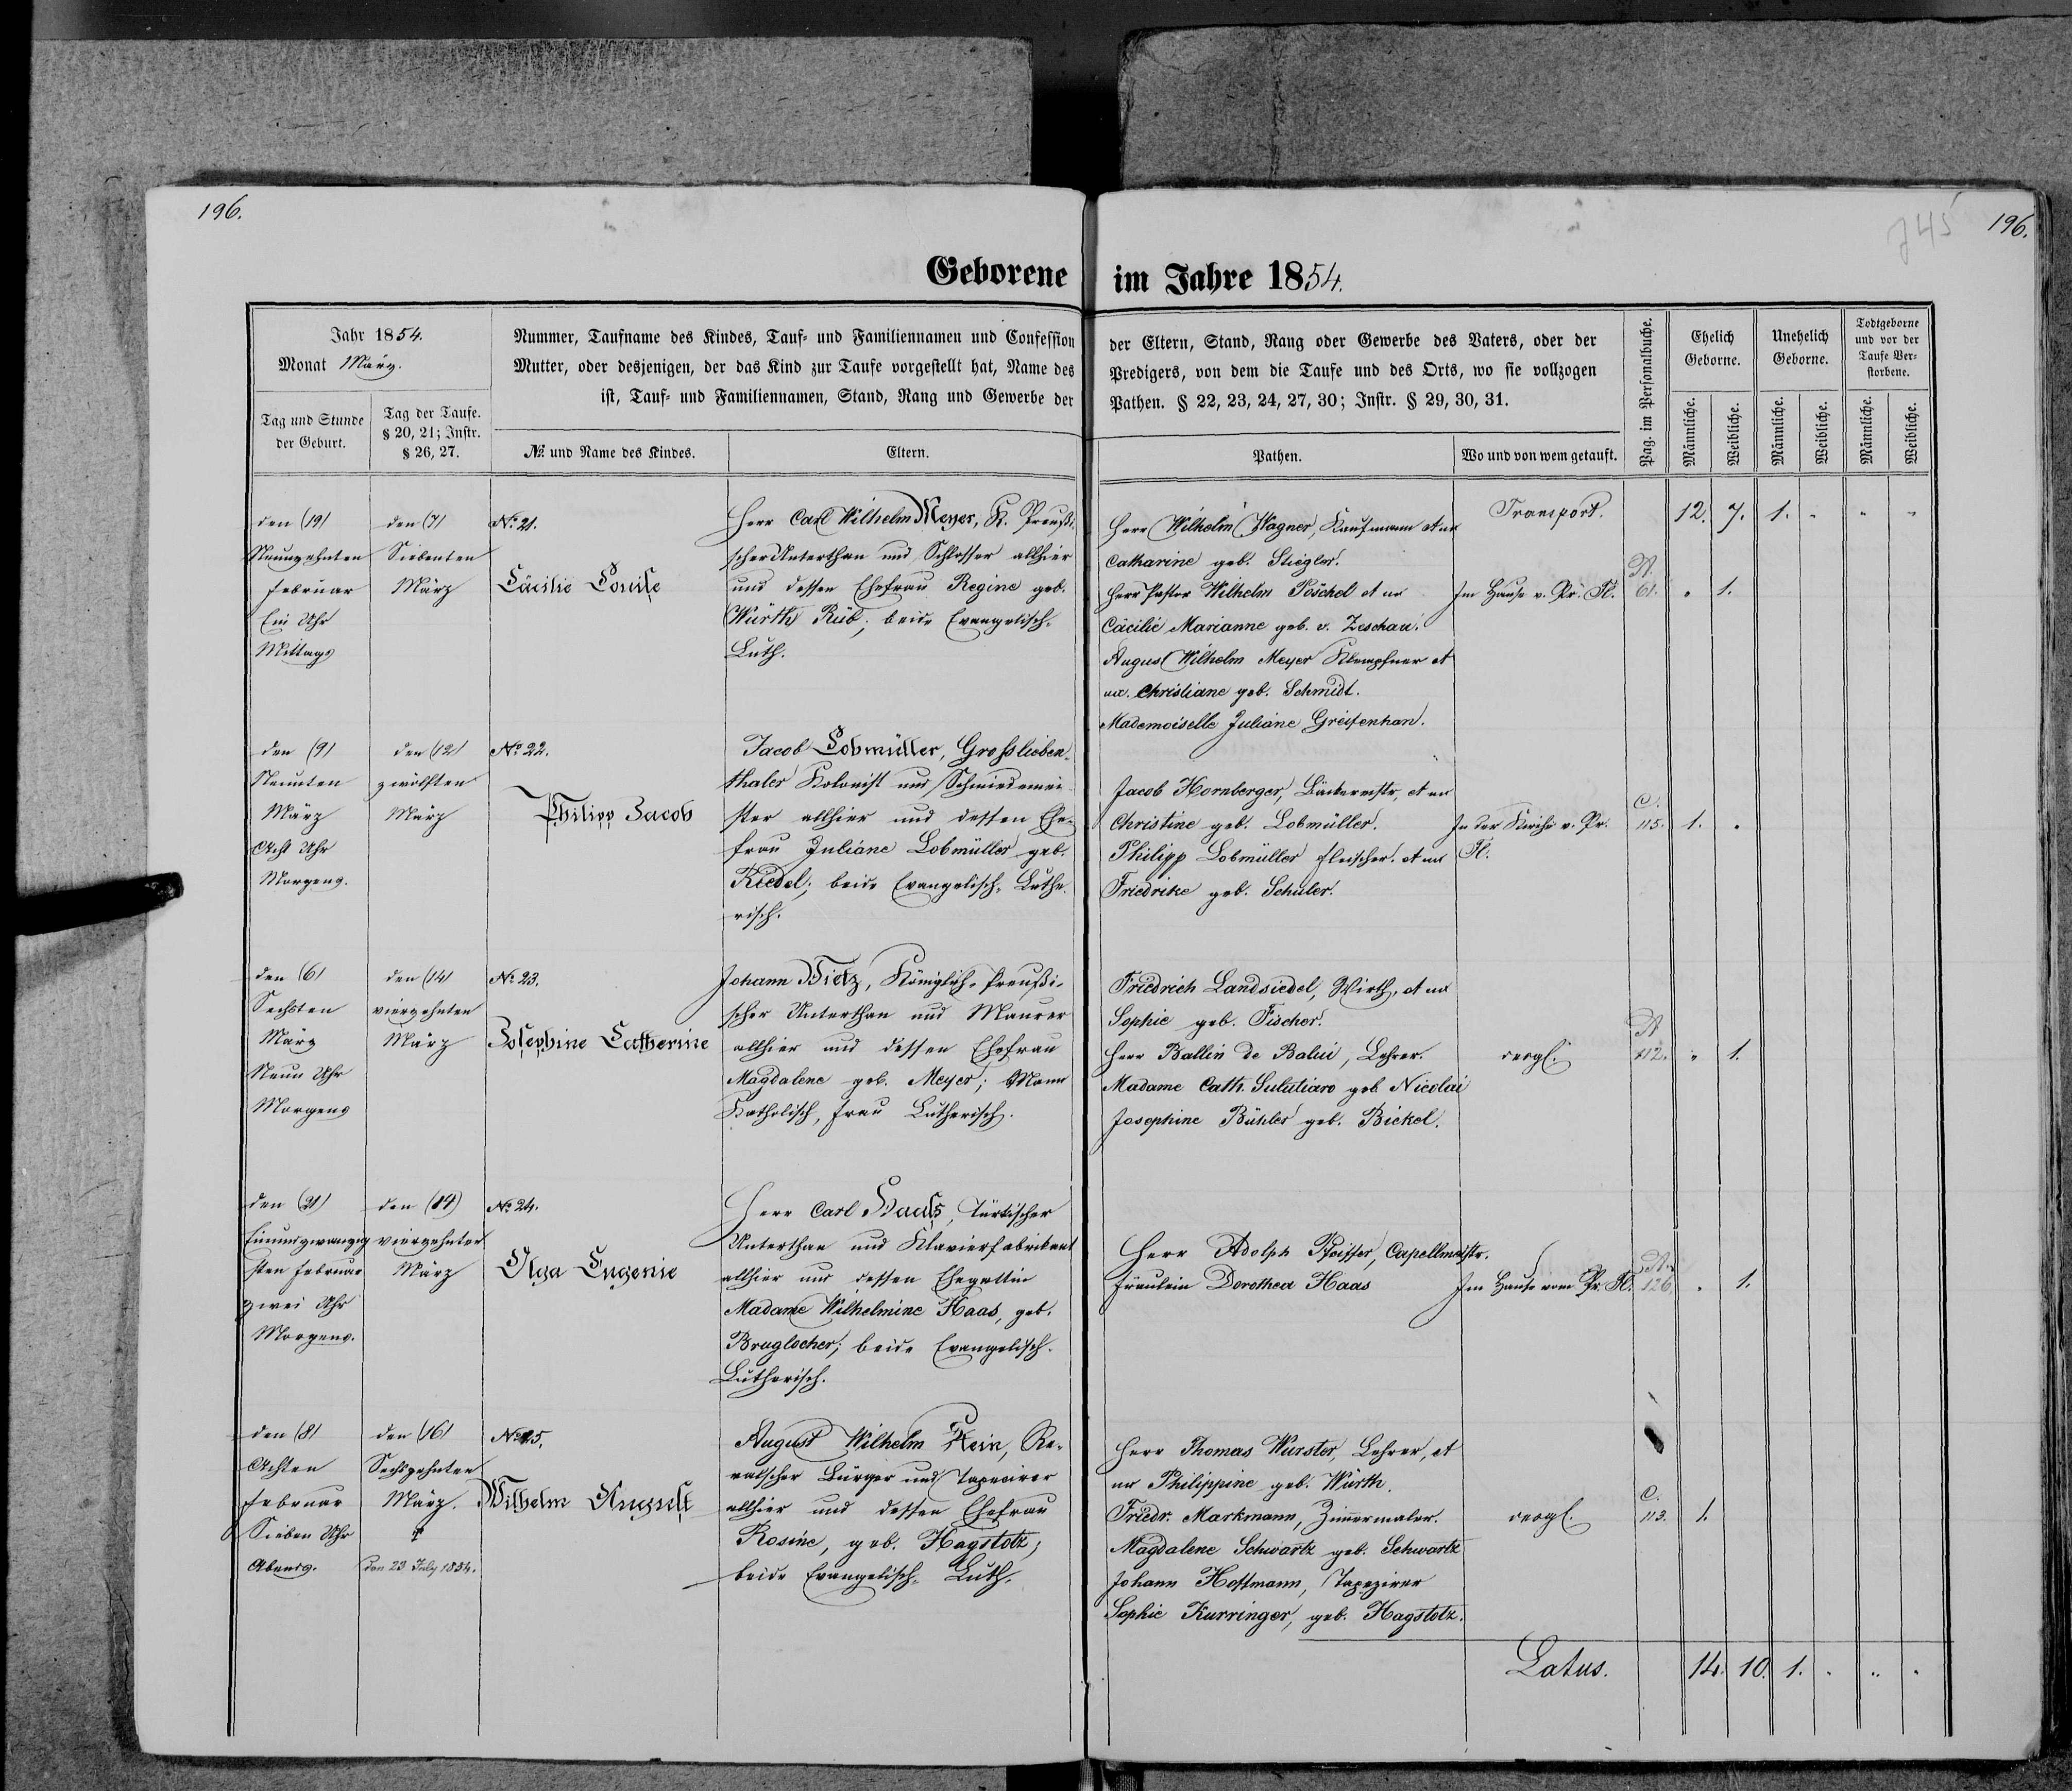 196.
196.
745
Geborene im Jahre 1854.
Jahr 1854.
Monat März.
Tag und Stunde
der Geburt.
Tag der Taufe.
§ 20, 21; Instr.
§ 26, 27.
Nummer, Taufname des Kindes, Tauf- und Familiennamen und Confession
Mutter, oder desjenigen, der das Kind zur Taufe vorgestellt hat, Name des
ist, Tauf- und Familiennamen, Stand, Rang und Gewerbe der
№ und Name des Kindes.
Eltern.
der Eltern, Stand, Rang oder Gewerbe des Vaters, oder der
Predigers, von dem die Taufe und des Orts, wo sie vollzogen
Pathen. § 22, 23, 24, 27, 30; Instr. § 29, 30, 31.
Pathen.
Wo und von wem getauft.
Pag. im Personalbuche.
Ehelich
Geborne.
Unehelich
Geborne.
Todtgeborne
und vor der
Taufe Ver-
storbene.
Männliche.
Weibliche.
Männliche.
Weibliche.
Männliche.
Weibliche.
den (19)
Neunzehnten
Februar
Ein Uhr
Mittags
den (7)
Siebenten
März
№ 21.
Cäcilie Louise
Herr Carl Wilhelm Meyer, K. Preußi-
scher Unterthan und Schlosser allhier
und dessen Ehefrau Regine geb.
Würth Rüb; beide Evangelisch-
Luth.
Herr Wilhelm Wagner, Kaufmann et ux
Catharine geb. Stiegler.
Herr Pastor Wilhelm Pöschel et ux
Cäcilie Marianne geb. v. Zeschau.
August Wilhelm Meyer Klempfner et
ux. Christiane geb. Schmidt.
Mademoiselle Juliane Greifenhan.
Transport.
12. 7. 1. " " "
Im Hause v. Pr. Fl.
A.
61. " 1.
den (9)
Neunten
März
Acht Uhr
Morgens.
den (12)
zwölften
März
№ 22.
Philipp Jacob
Jacob Lobmüller, Grosslieben-
thaler Kolonist und Schmiedemei-
ster allhier und dessen Ehe-
frau Juliane Lobmüller geb.
Riedel; beide Evangelisch-Luthe-
risch.
Jacob Hornberger, Bäckermstr, et ux
Christine geb. Lobmüller.
Philipp Lobmüller Fleischer. et ux
Friedrike geb. Schuler.
In der Kirche v. Pr.
Fl.
C.
115. 1. "
den (6)
Sechsten
März
Neun Uhr
Morgens
den (14)
vierzehnten
März
№ 23.
Josephine Catherine
Johann Dietz, Königlich-Preußi-
scher Unterthan und Maurer
allhier und dessen Ehefrau
Magdalene geb. Meyer; Mann
Katholisch, Frau Lutherisch.
Friedrich Landsiedel, Wirth, et ux
Sophie geb. Fischer.
Herr Ballin de Balui, Lehrer.
Madame Cath. Sulutiaro geb. Nicolai
Josephine Bühler geb. Bickel.
dergl.
A
112. " 1.
den (21)
Einundzwanzig
sten Februar
zwei Uhr
Morgens.
den (14)
vierzehnten
März
№ 24.
Olga Eugenie
Herr Carl Haas, Türkischer
Unterthan und Klavierfabrikant
allhier und dessen Ehegattin
Madame Wilhelmine Haas, geb.
Bruglocher; beide Evangelisch-
Lutherisch.
Herr Adolph Pfeiffer, Capellmeistr.
Fräulein Dorothea Haas
Im Hause vom Pr. Fl.
A.
126. " 1.
den (8)
Achten
Februar
Sieben Uhr
Abends.
den (16)
Sechszehnten
März.
†
den 23 July 1854.
№ 25.
Wilhelm August
August Wilhelm Klein, Re-
valscher Bürger und Tapecirer
allhier und dessen Ehefrau
Rosine, geb. Hagstotz;
beide Evangelisch-Luth.
Herr Thomas Wurster, Lehrer, et
ux Philippine geb. Würth.
Friedr. Markmann, Zimmermaler.
Magdalene Schwartz geb. Schwartz
Johann Hoffmann, Tapezirer
Sophie Kurringer, geb. Hagstotz.
dergl.
C.
113. 1.
Latus. 14. 10. 1. " " "